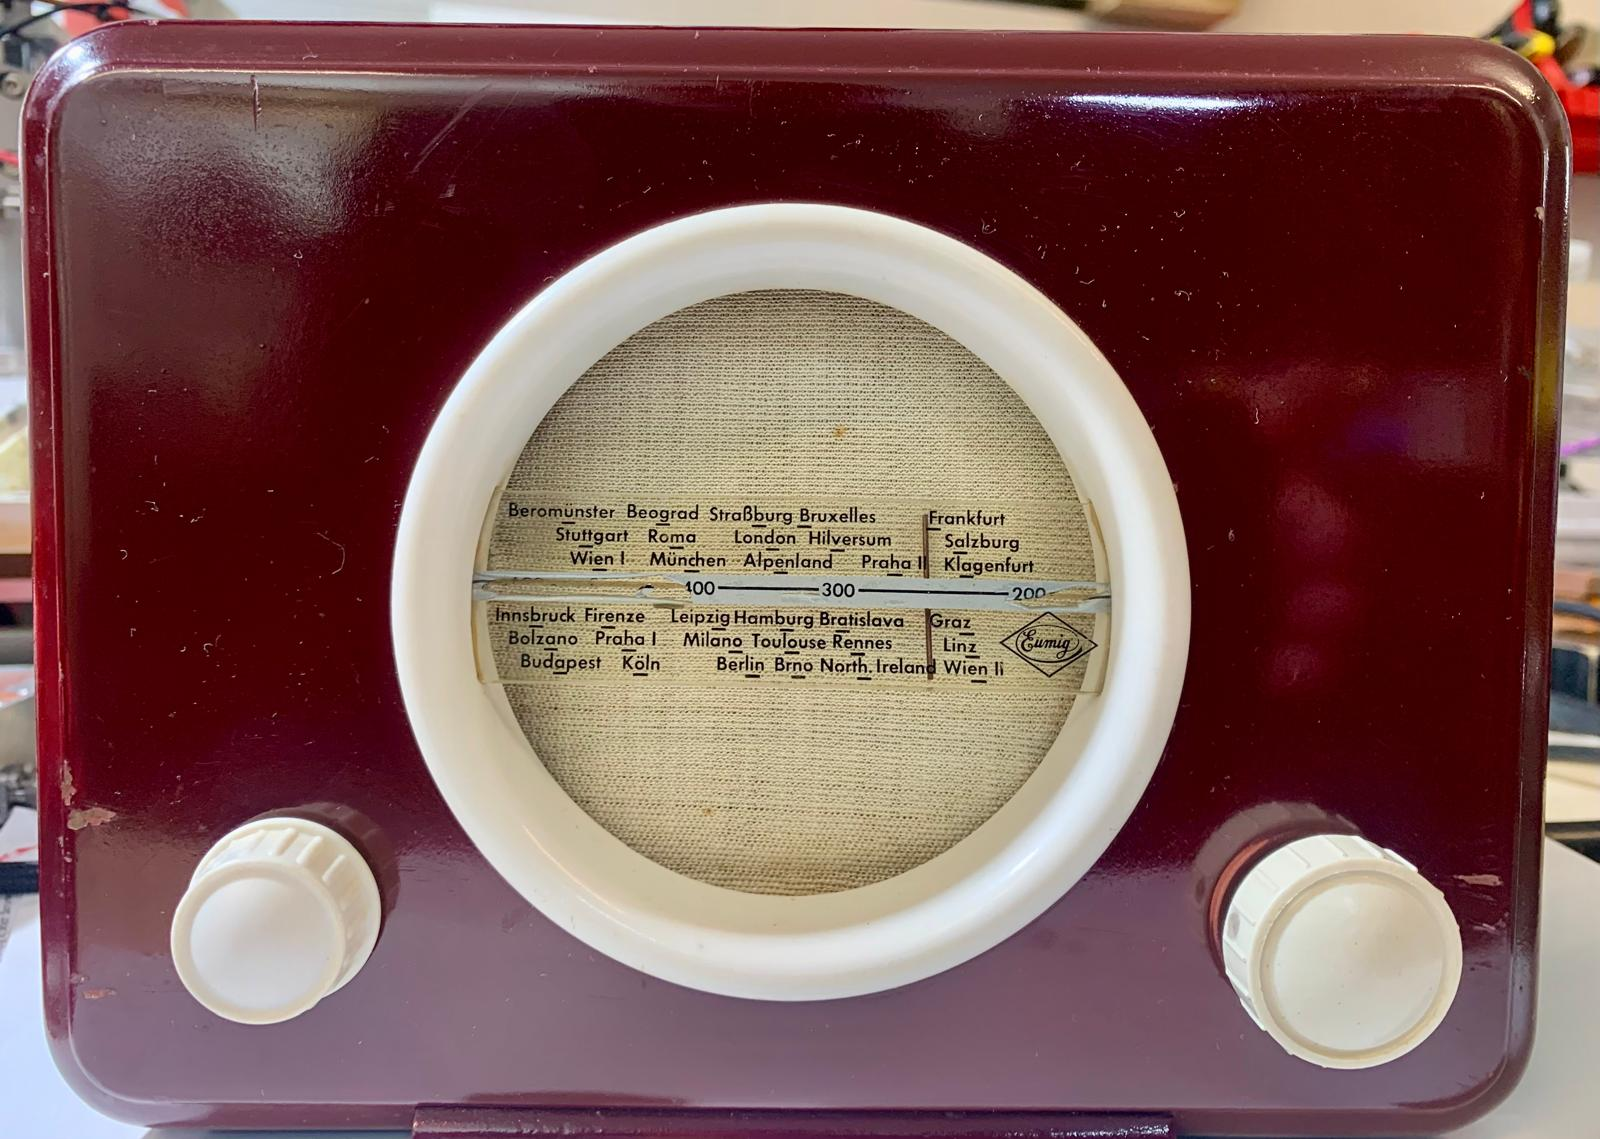 Beromünster Beograd Straßburg Bruxelles Frankfurt
Stuttgart Roma London Hilversum Salzburg
Wien I München Alpenland Praha II Klagenfurt
400 300 200
Innsbruck Firenze Leipzig Hamburg Bratislava Graz
Bolzano Praha I Milano Toulouse Rennes Linz
Budapest Köln Berlin Brno North. Ireland Wien Ii
Eumig